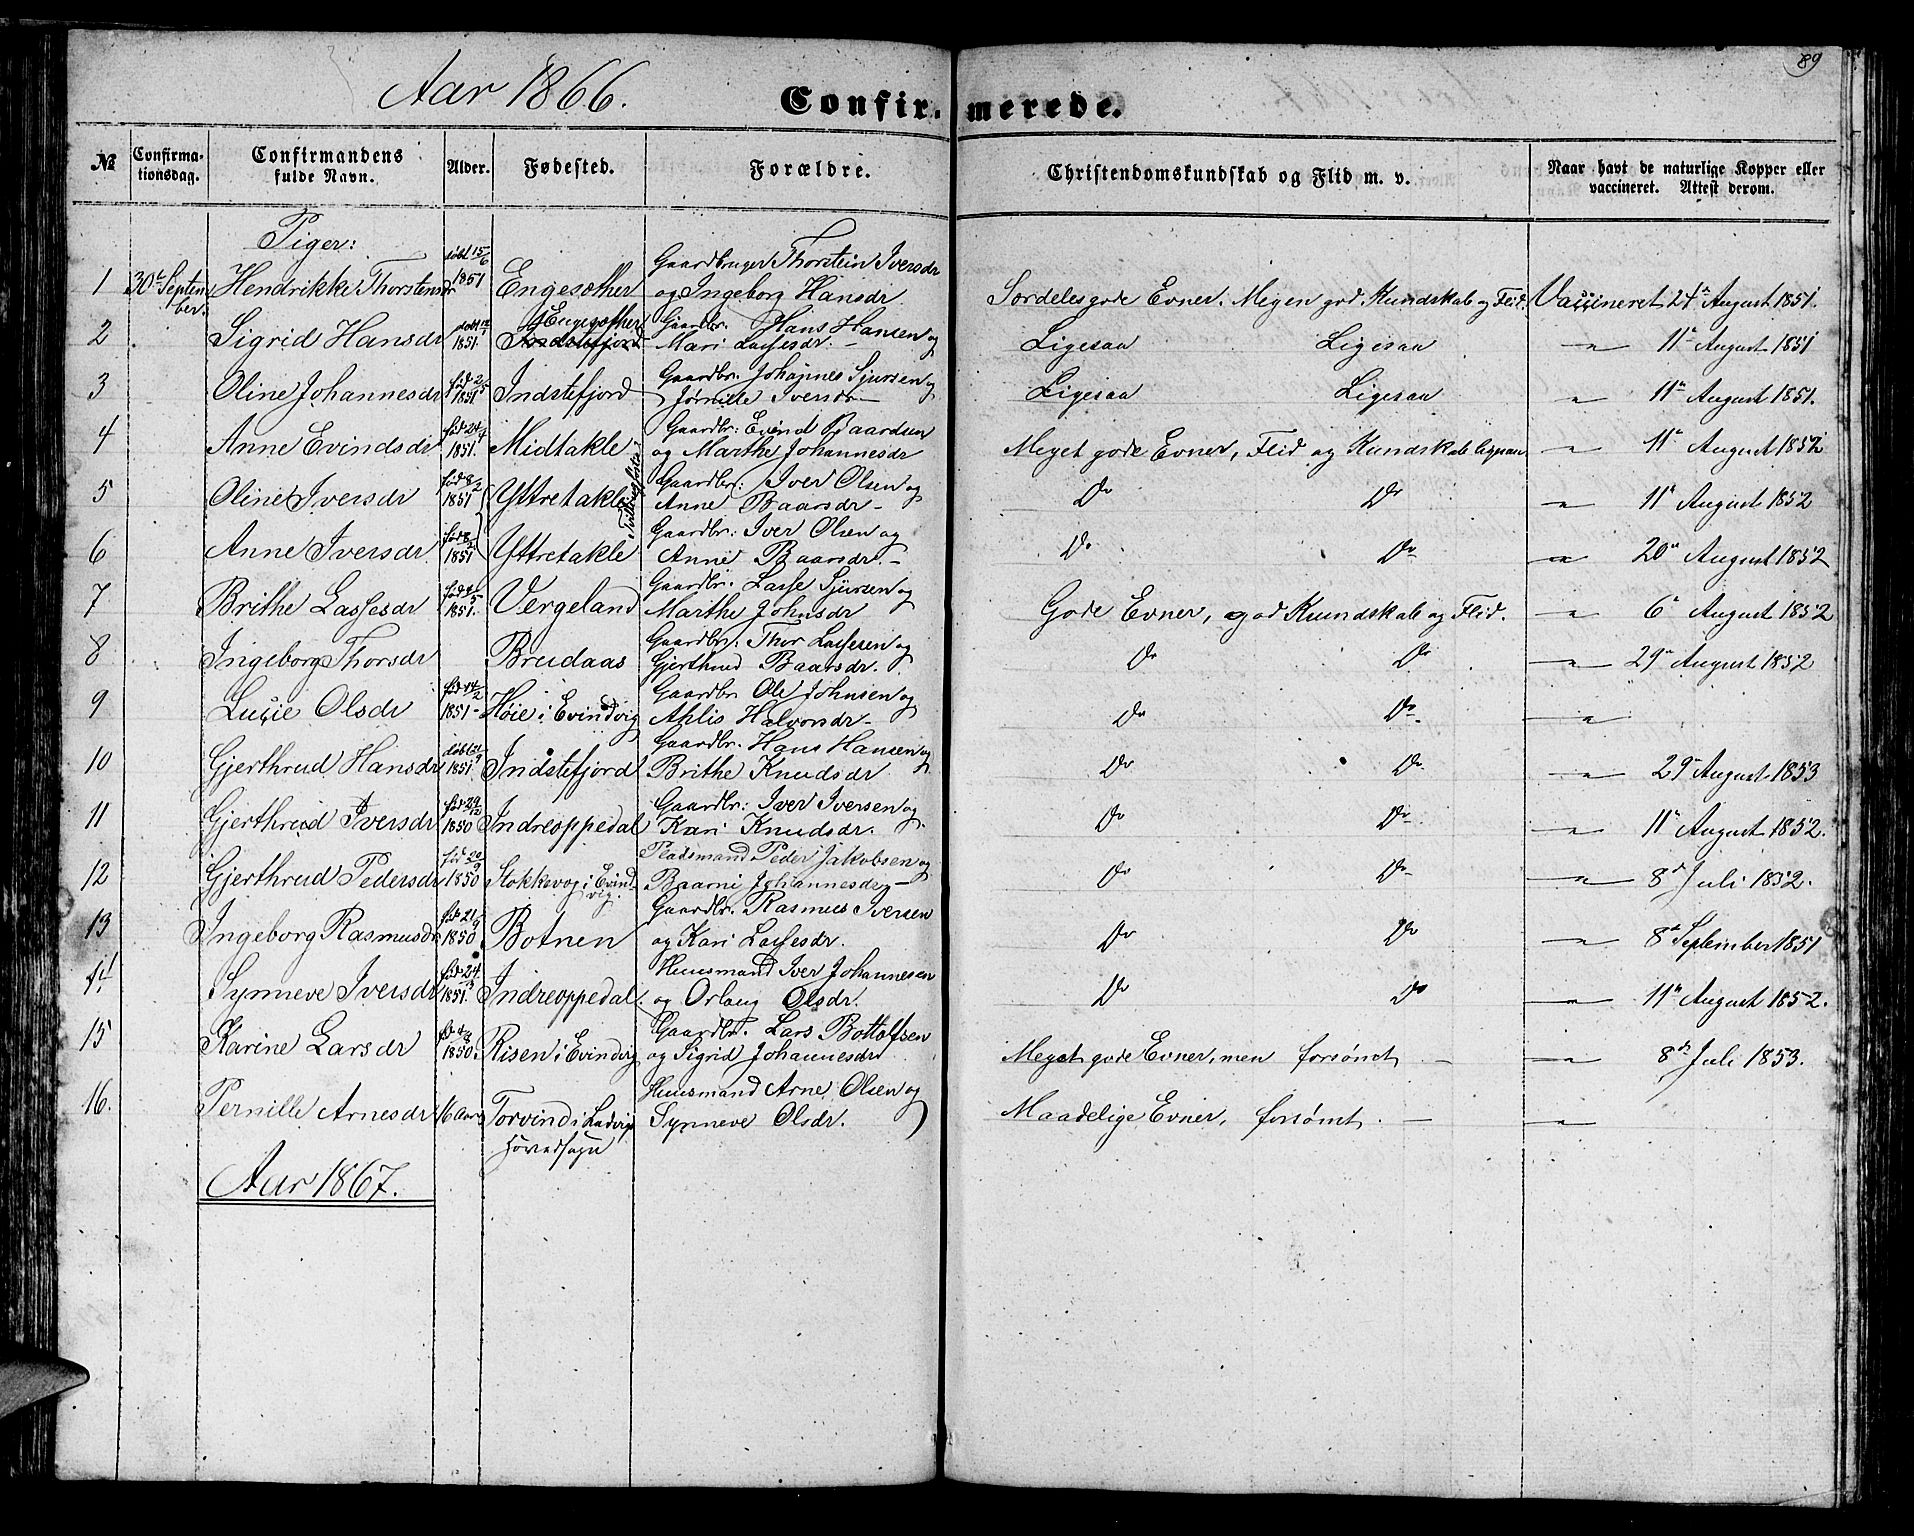 89
Aar 1866.
Confirmerede.
№ Confirmationsdag. Confirmandens fulde Navn. Alder. Fødested. Forældre. Christendomskundskab og Flid m. v. Naar havt de naturlige Kopper eller vaccineret. Attest derom.
Piger:
1 30te September. Hendrikke Thorstensdr døbt 15/6 1851 Engesæther Gaardbruger Thorstein Iversdr og Ingeborg Hansdr Særdeles gode Evner. Megen god Kundskab og Flid. Vaccineret 24de August 1851.
2 Sigrid Hansdr døbt 1851. Engesæther Indstefjord Gaardbr. Hans Hansen og Mari Lassesdr. Ligesaa Ligesaa — " — 11te August 1851
3 Oline Johannesdr fød 2/5 1851 Indstefjord Gaardbr. Johannes Sjursen og Iversdr Ligesaa Ligesaa — " — 11te August 1851.
4 Anne Evindsdr fød 24/4 1851. Midtakle Gaardbr: Evind Baardsen og Marthe Johannesdr Meget gode Evner, Flid og Kundskab ligesaa — " — 11te August 1852
5 Oline Iversdr fød 8/2 1851 Yttretakle Tvillingsøstre Gaardbr: Iver Olsen og Anne Baarsdr Do Do — " — 11te August 1852
6 Anne Iversdr fød 8/2 1851 Yttretakle Gaardbr: Iver Olsen og Anne Baarsdr. Do Do — " — 20de August 1852
7 Brithe Lassesdr fød 4/5 1851. Vergeland Gaardbr. Lasse Sjursen og Marthe Johnsdr Gode Evner, god Kundskab og Flid. — " — 6te August 1852
8 Ingeborg Thorsdr Brudaas Gaardbr. Thor Lassesen og Gjerthrud Baarsdr. Do Do — " — 29de August 1852
9 Lucie Olsdr fød 14/2 1851 Høie i Evindvig Gaardbr Ole Johnsen og Ahlis Halvorsdr Do Do — " —
10 Gjerthrud Hansdr døbt 1851 Indstefjord Gaardbr. Hans Hansen og Brithe Knudsdr Do Do — " — 29de August 1853
11 Gjerthrud Iversdr fød 29/12 1850 Indreoppedal Gaardbr: Iver Iversen og Kari Knudsdr. Do Do — " — 11te August 1852.
12 Gjerthrud Pedersdr fød 20/9 1850 Stokkevog i Evindvig. Pladsmand Peder Jakobsen og Baarni Johannesdr Do Do — " — 8de Juli 1852.
13 Ingeborg Rasmusdr fød 21/9 1850 Botnen Gaardbr. Rasmus Iversen og Kari Lassesdr. Do Do — " — 8de September 1851
14 Synneve Iversdr fød 24/3 1851. Indreoppedal. Huusmand Iver Johannesen og Orlaug Olsdr. Do Do — " — 11te August 1852.
15 Karine Larsdr 1850. Risen i Evindvig Gaardbr. Lars Bottolfsen og Sigrid Johannesdr Meget gode Evner, men forsømt — " — 8de Juli 1853.
16. Pernille Arnesdr 16 Aar Torvind i Ladvigs Hovedsogn Huusmand Arne Olsen og Synneve Olsdr. Maadelige Evner, forsømt. — " —
Aar 1867.